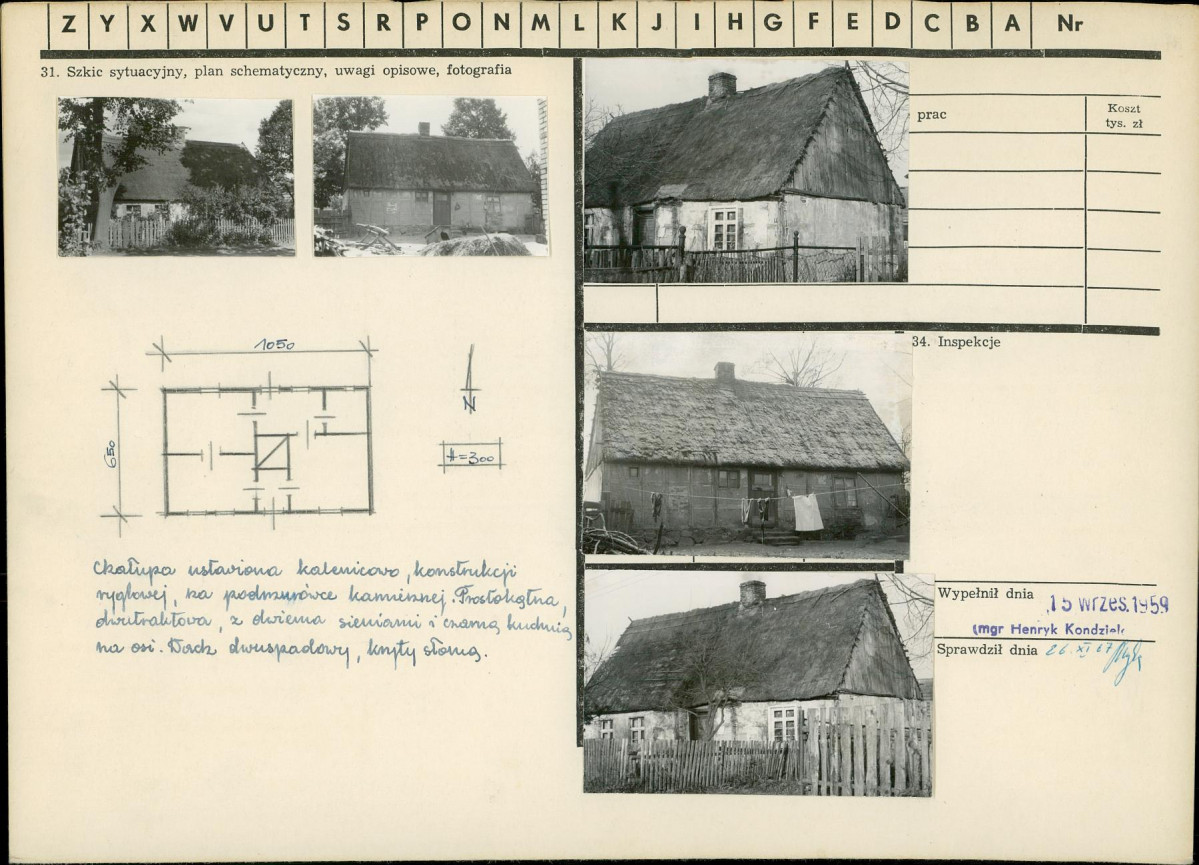 Z Y X W V U T S R P O N M L K J I H G F E D C B A Nr
31. Szkic sytuacyjny, plan schematyczny, uwagi opisowe, fotografia
prac
Koszt
tys. zł
1050
650
N
H=300
Chałupa ustawiona kalenicowo, konstrukcji
ryglowej, na podmurówce kamiennej. Prostokątna,
dwutraktowa, z dwiema sieniami i czarną kuchnią
na osi. Dach dwuspadowy, kryty słomą.
34. Inspekcje
Wypełnił dnia
15 wrzes. 1959
(mgr Henryk Kondziel
Sprawdził dnia 26. XI 67